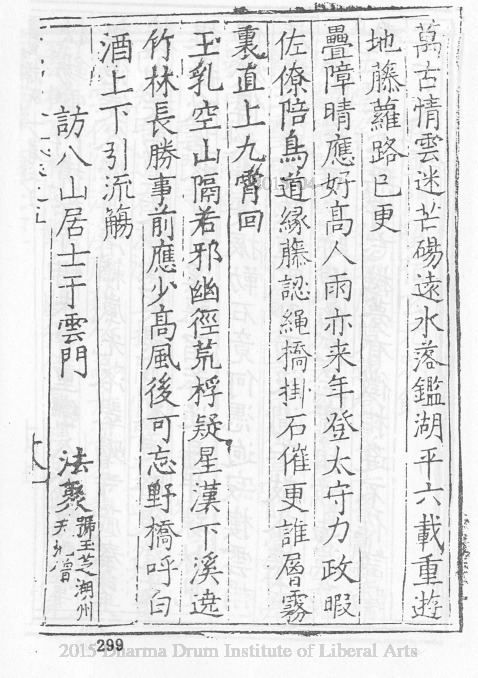 萬古情雲迷芒碭遠水落鑑湖平六載重遊
地藤蘿路已更
疊障晴應好高人雨亦来年登太守力政暇
佐僚陪鳥道緣藤認繩橋掛石催更誰層霧
裏直上九霄回
玉乳空山隔若邪幽徑荒桴疑星漢下溪遶
竹林長勝事前應少高風後可忘野橋呼白
酒上下引流觴
訪八山居士于雲門 法聚 號玉芝湖州
299
2015 Dharma Drum Institute of Liberal Arts